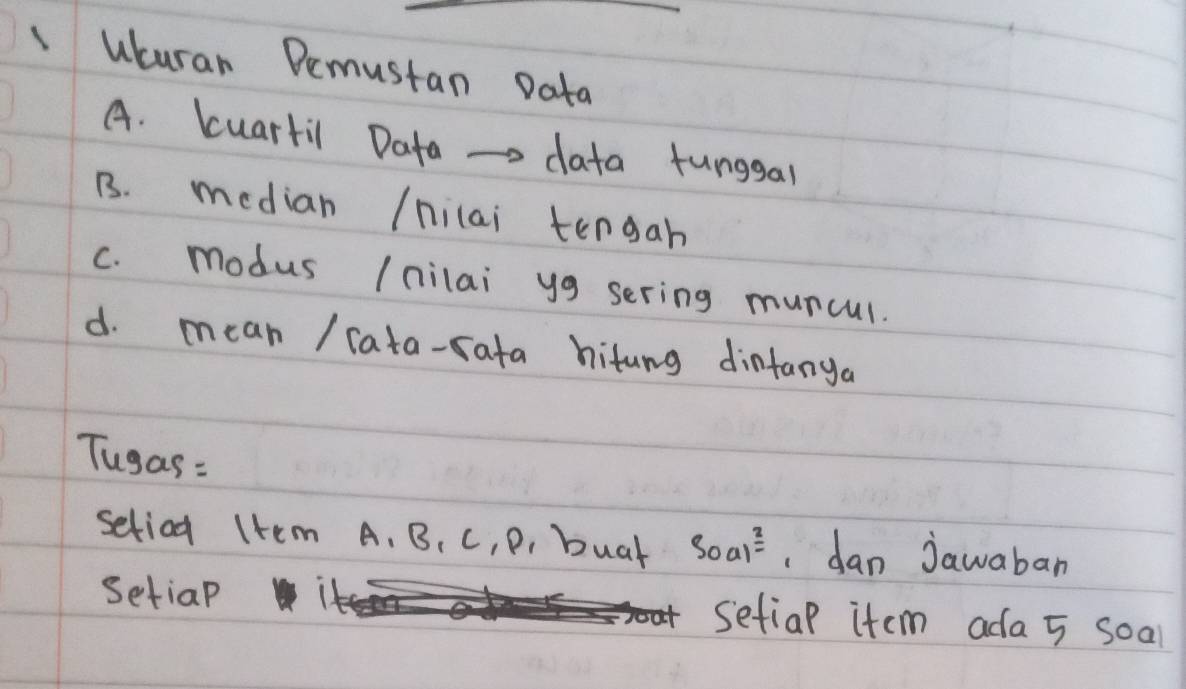 1 Ukuran Pemustan Data
A. kuartil Data → data tunggal
B. median /nilai tengah
C. modus /nilai yg sering muncul.
d. mean /rata-rata hitung dintanya
Tugas =
setiap Item A, B, C, D, buat soal², dan jawaban
setiap item setiap item ada 5 soal